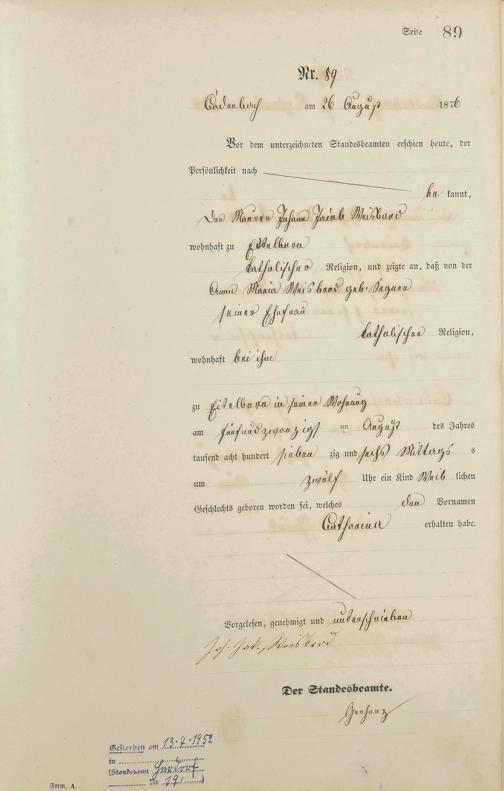 Seite 89
Nr. 89
Cadenbach am 26 August 1876
Vor dem unterzeichneten Standesbeamten erschien heute, der
Persönlichkeit nach
be kannt,
der Maurer Johann Jacob Weisbrod
wohnhaft zu Eitelborn
katholischer Religion, und zeigte an, daß von der
Anna Maria Weisbrod geb:
seiner Ehefrau
katholischer Religion,
wohnhaft bei ihm
zu Eitelborn in seiner Wohnung
am fünfundzwanzigst en August des Jahres
tausend acht hundert sieben zig und sechs Mittags s
um zwölf Uhr ein Kind Weib lichen
Geschlechts geboren worden sei, welches den Vornamen
Catharina erhalten habe.
Vorgelesen, genehmigt und unterschrieben
Joh. Jak. Weisbrod
Der Standesbeamte.
Gestorben am 13.7.1952
in
(Standesamt
Nr. 19)
Form. A.